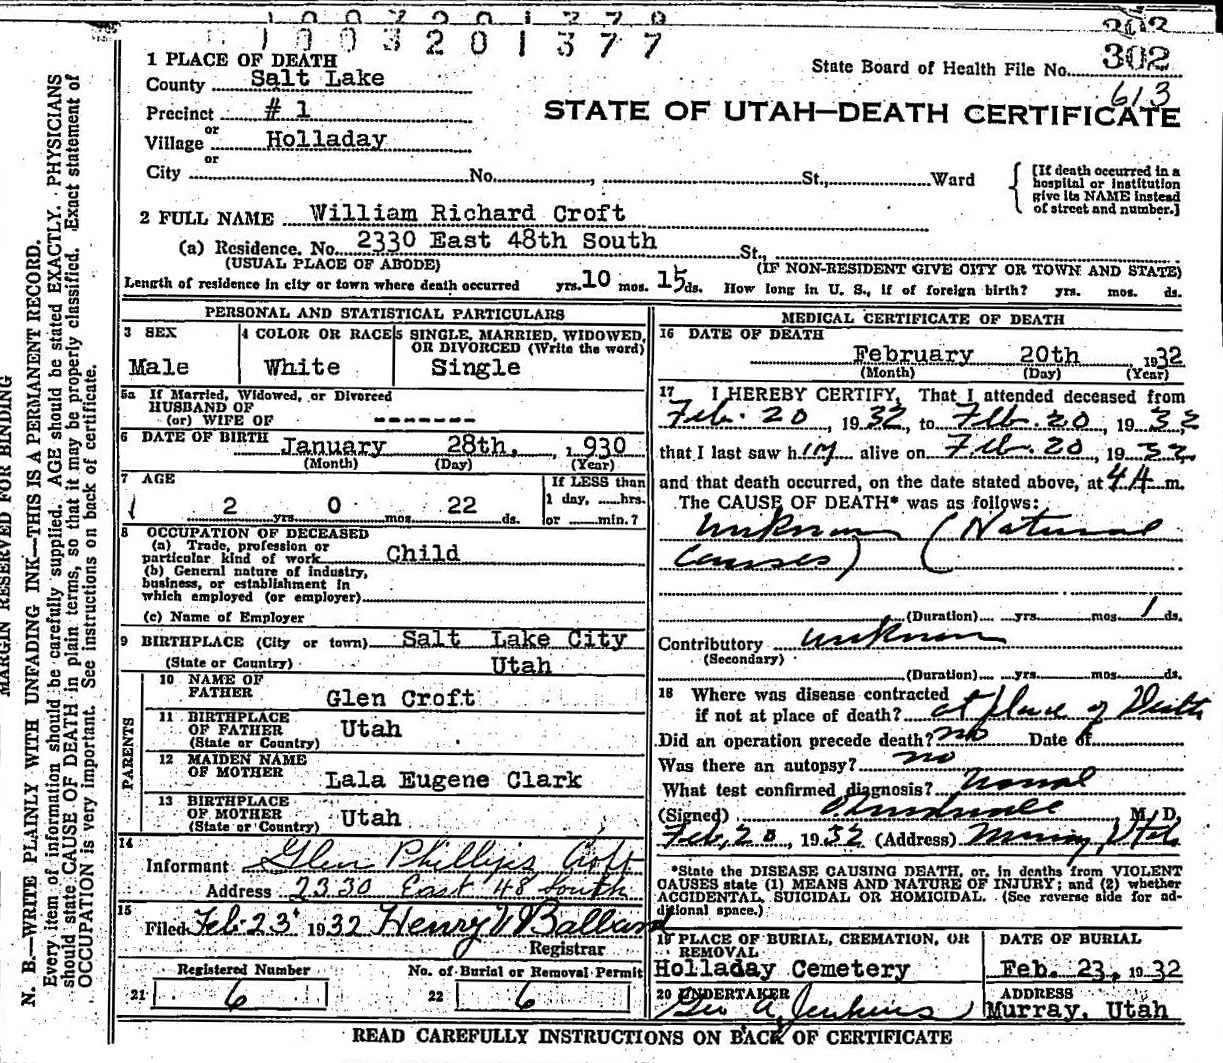 1003201377
302
1 PLACE OF DEATH
State Board of Health File No. 302
County Salt Lake
613
Precinct # 1
STATE OF UTAH—DEATH CERTIFICATE
or
Village Holladay
or
City No. , St., Ward
{ [If death occurred in a hospital or institution give its NAME instead of street and number.]
2 FULL NAME William Richard Croft
(a) Residence. No. 2330 East 48th South St.,
(USUAL PLACE OF ABODE) (IF NON-RESIDENT GIVE CITY OR TOWN AND STATE)
Length of residence in city or town where death occurred yrs. 10 mos. 15 ds. How long in U. S., if of foreign birth? yrs. mos. ds.
PERSONAL AND STATISTICAL PARTICULARS
3 SEX
Male
4 COLOR OR RACE
White
5 SINGLE, MARRIED, WIDOWED,
OR DIVORCED (Write the word)
Single
5a If Married, Widowed, or Divorced
HUSBAND OF
(or) WIFE OF -------
6 DATE OF BIRTH January 28th, 1930
(Month) (Day) (Year)
7 AGE
2 yrs. 0 mos. 22 ds.
If LESS than
1 day, hrs.
or min.?
8 OCCUPATION OF DECEASED
(a) Trade, profession or
particular kind of work Child
(b) General nature of industry,
business, or establishment in
which employed (or employer)
(c) Name of Employer
9 BIRTHPLACE (City or town) Salt Lake City
(State or Country) Utah
PARENTS
10 NAME OF
FATHER Glen Croft
11 BIRTHPLACE
OF FATHER Utah
(State or Country)
12 MAIDEN NAME
OF MOTHER Lala Eugene Clark
13 BIRTHPLACE
OF MOTHER Utah
(State or Country)
14
Informant Glen Phillips Croft
Address 2330 East 48 South
15
Filed Feb. 23 1932 Henry W Ballard
Registrar
Registered Number
21 6
No. of Burial or Removal Permit
22 6
MEDICAL CERTIFICATE OF DEATH
16 DATE OF DEATH
February 20th 1932
(Month) (Day) (Year)
17 I HEREBY CERTIFY, That I attended deceased from
Feb. 20, 1932, to Feb. 20, 1932
that I last saw him alive on Feb. 20, 1932,
and that death occurred, on the date stated above, at 4 A m.
The CAUSE OF DEATH* was as follows:
Unknown (Natural
Causes)
(Duration) yrs. mos. 1 ds.
Contributory unknown
(Secondary)
(Duration) yrs. mos. ds.
18 Where was disease contracted
if not at place of death? at place of Death
Did an operation precede death? no Date of
Was there an autopsy? no
What test confirmed diagnosis?
(Signed) M. D.
Feb, 20, 1932 (Address) Murray, Utah
*State the DISEASE CAUSING DEATH, or, in deaths from VIOLENT
CAUSES state (1) MEANS AND NATURE OF INJURY; and (2) whether
ACCIDENTAL, SUICIDAL OR HOMICIDAL. (See reverse side for ad-
ditional space.)
19 PLACE OF BURIAL, CREMATION, OR
REMOVAL
Holladay Cemetery
DATE OF BURIAL
Feb. 23, 1932
20 UNDERTAKER
Geo A. Jenkins
ADDRESS
Murray, Utah
READ CAREFULLY INSTRUCTIONS ON BACK OF CERTIFICATE
MARGIN RESERVED FOR BINDING
N. B.—WRITE PLAINLY WITH UNFADING INK—THIS IS A PERMANENT RECORD.
Every item of information should be carefully supplied. AGE should be stated EXACTLY. PHYSICIANS
should state CAUSE OF DEATH in plain terms, so that it may be properly classified. Exact statement of
OCCUPATION is very important. See instructions on back of certificate.